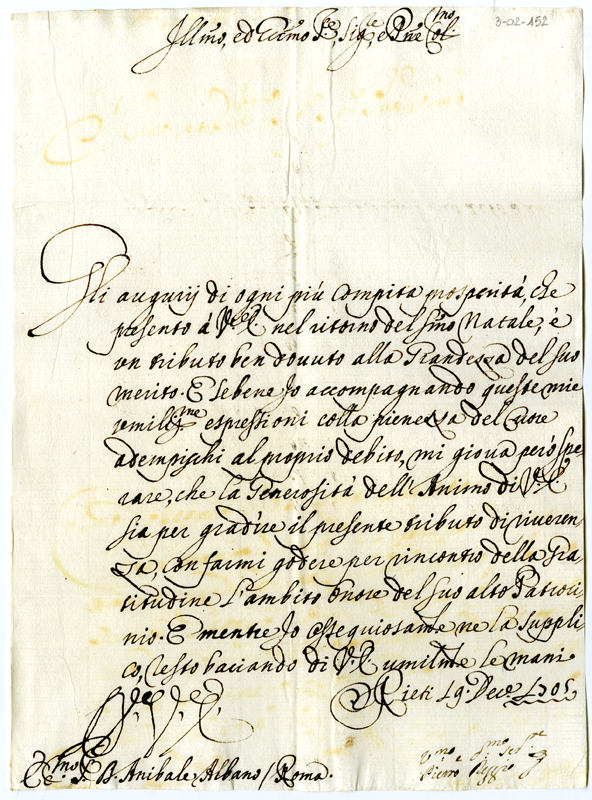 3-02-152
Illmo, ed Eccmo Sre, Sige, e Pne Colmo.
Gli augurij di ogni più compita prosperità, che
presento à V. E. nel ritorno del Smo Natale, è
vn tributo ben douuto alla Grandezza del suo
merito. E sebene Jo accompagnando queste mie
vmilme espressioni colla pienezza del Cuore
adempischi al proprio debito, mi gioua però spe-
rare, che la Generosità dell'Animo di V. E.
sia per gradire il presente tributo di riueren-
za, con farmi godere per rincontro della Gra-
titudine l'ambito onore del suo alto Patroci-
nio. E mentre Jo ossequiosamte ne la suppli-
co, resto baciando di V. E. umilmte le mani
Rieti 19. Dece. 1705.
Di V. E.
D. Anibale Albano / Roma.
Vmo e Smo Sedre
Pietro